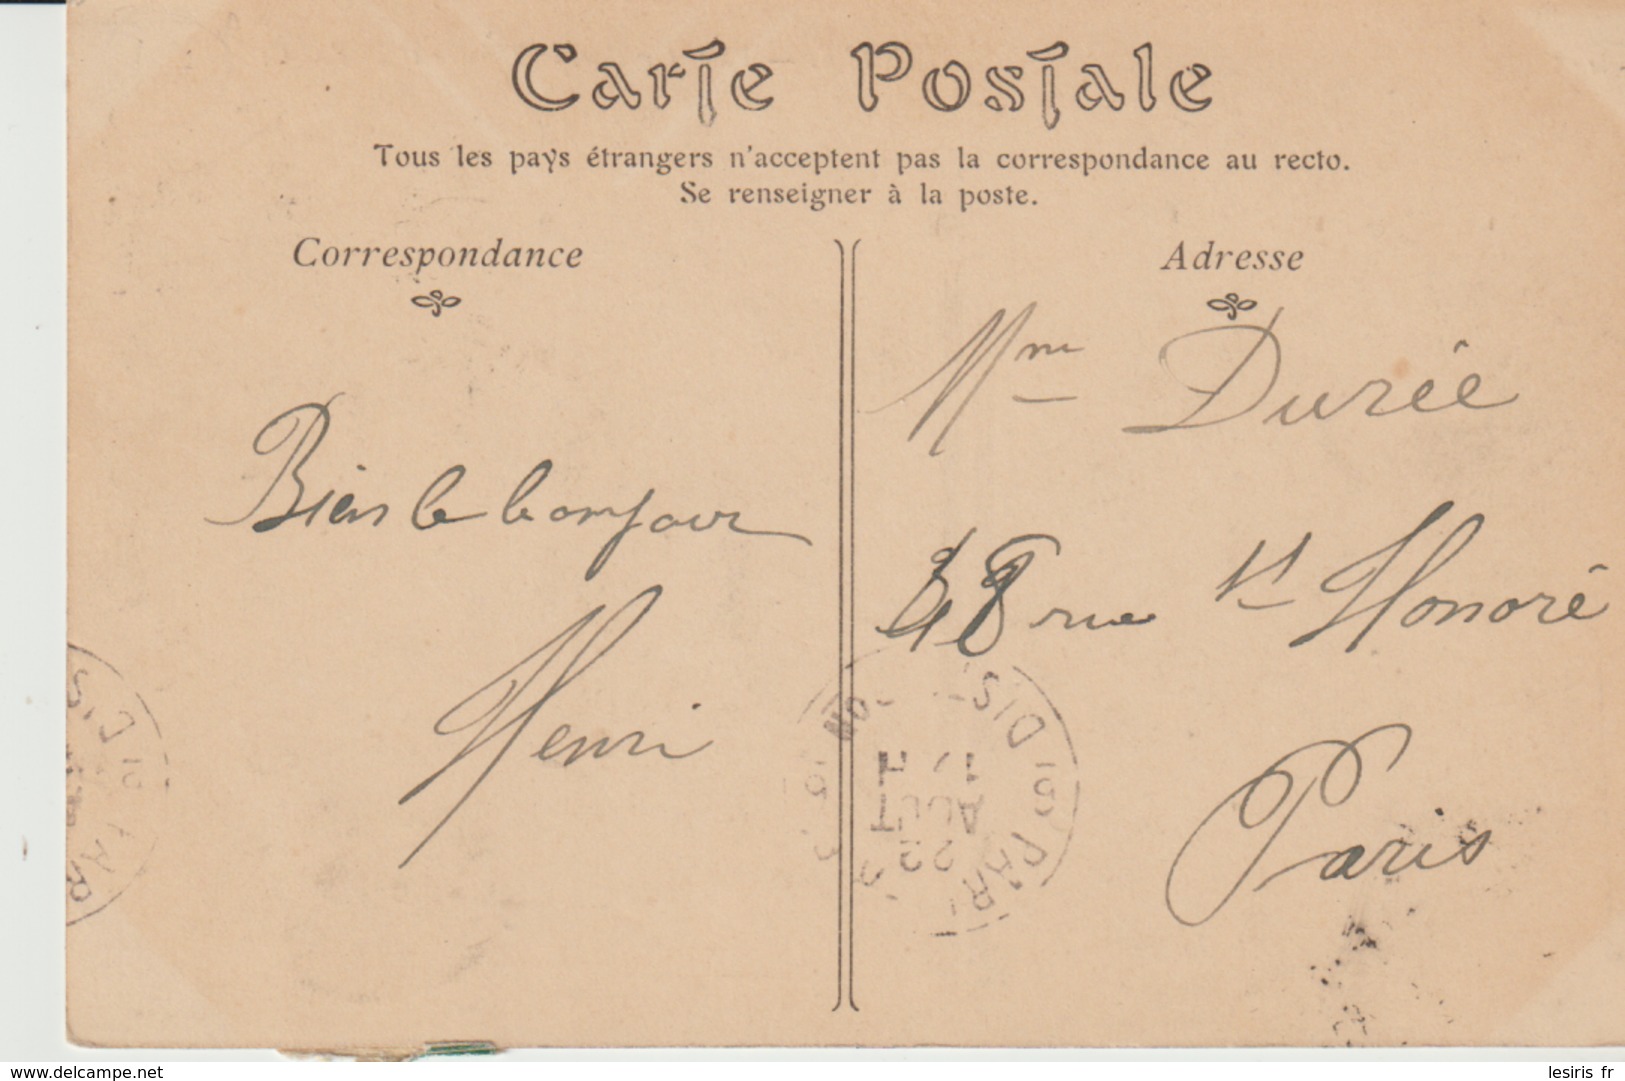 Carte Postale
Tous les pays étrangers n'acceptent pas la correspondance au recto.
Se renseigner à la poste.
Correspondance
Bien le bonjour
Henri
Adresse
Mme Durée
48 rue St Honoré
Paris
PARIS DIS
AOUT
www.delcampe.net
lesiris fr